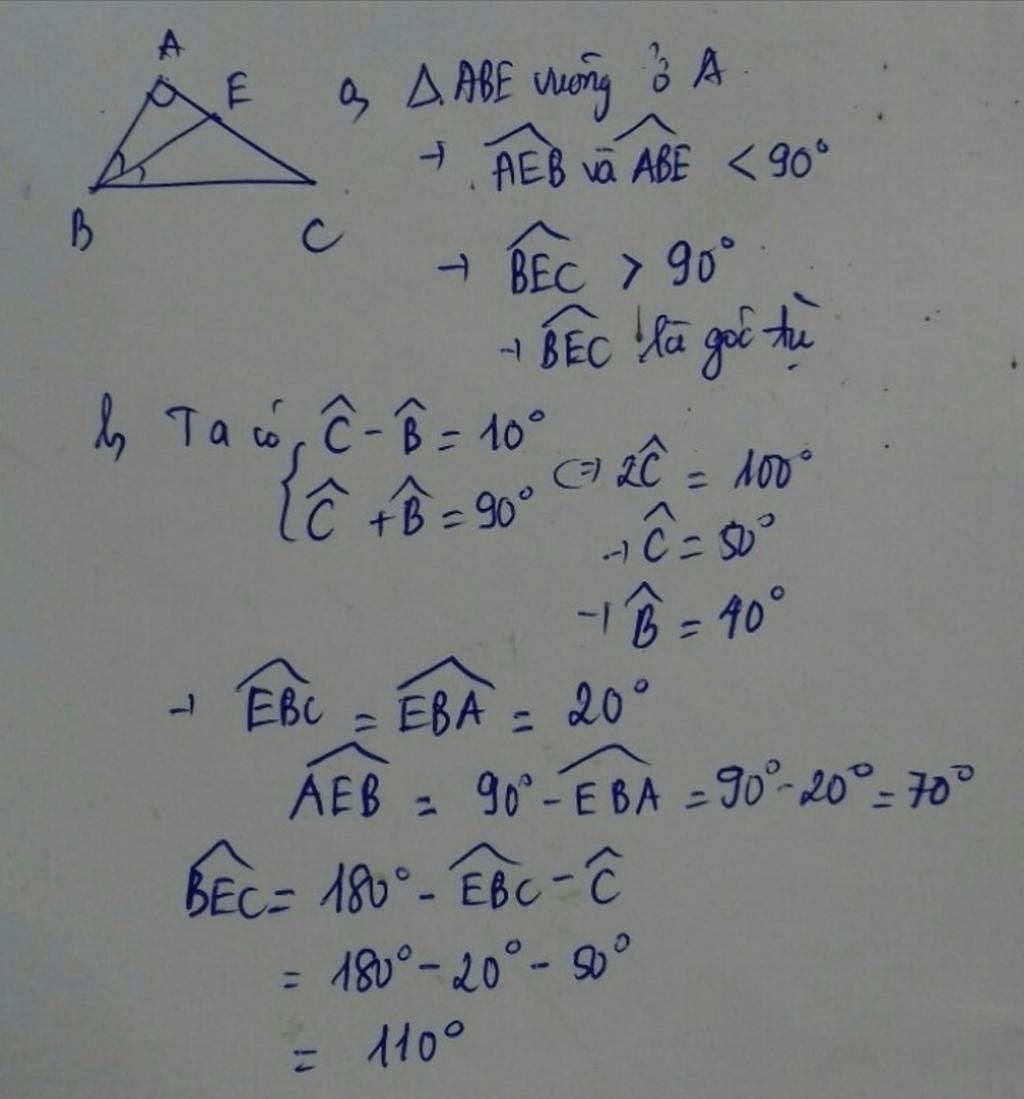 A
E
B
C
a, ΔABE vuông ở A
→ $\widehat{AEB}$ và $\widehat{ABE}$ < 90°
→ $\widehat{BEC}$ > 90°
→ $\widehat{BEC}$ là góc tù
b, Ta có $\hat{C}$ - $\hat{B}$ = 10°
{ $\hat{C}$ + $\hat{B}$ = 90° <=> 2$\hat{C}$ = 100°
→ $\hat{C}$ = 50°
→ $\hat{B}$ = 40°
→ $\widehat{EBC}$ = $\widehat{EBA}$ = 20°
$\widehat{AEB}$ = 90° - $\widehat{EBA}$ = 90° - 20° = 70°
$\widehat{BEC}$ = 180° - $\widehat{EBC}$ - $\hat{C}$
= 180° - 20° - 50°
= 110°